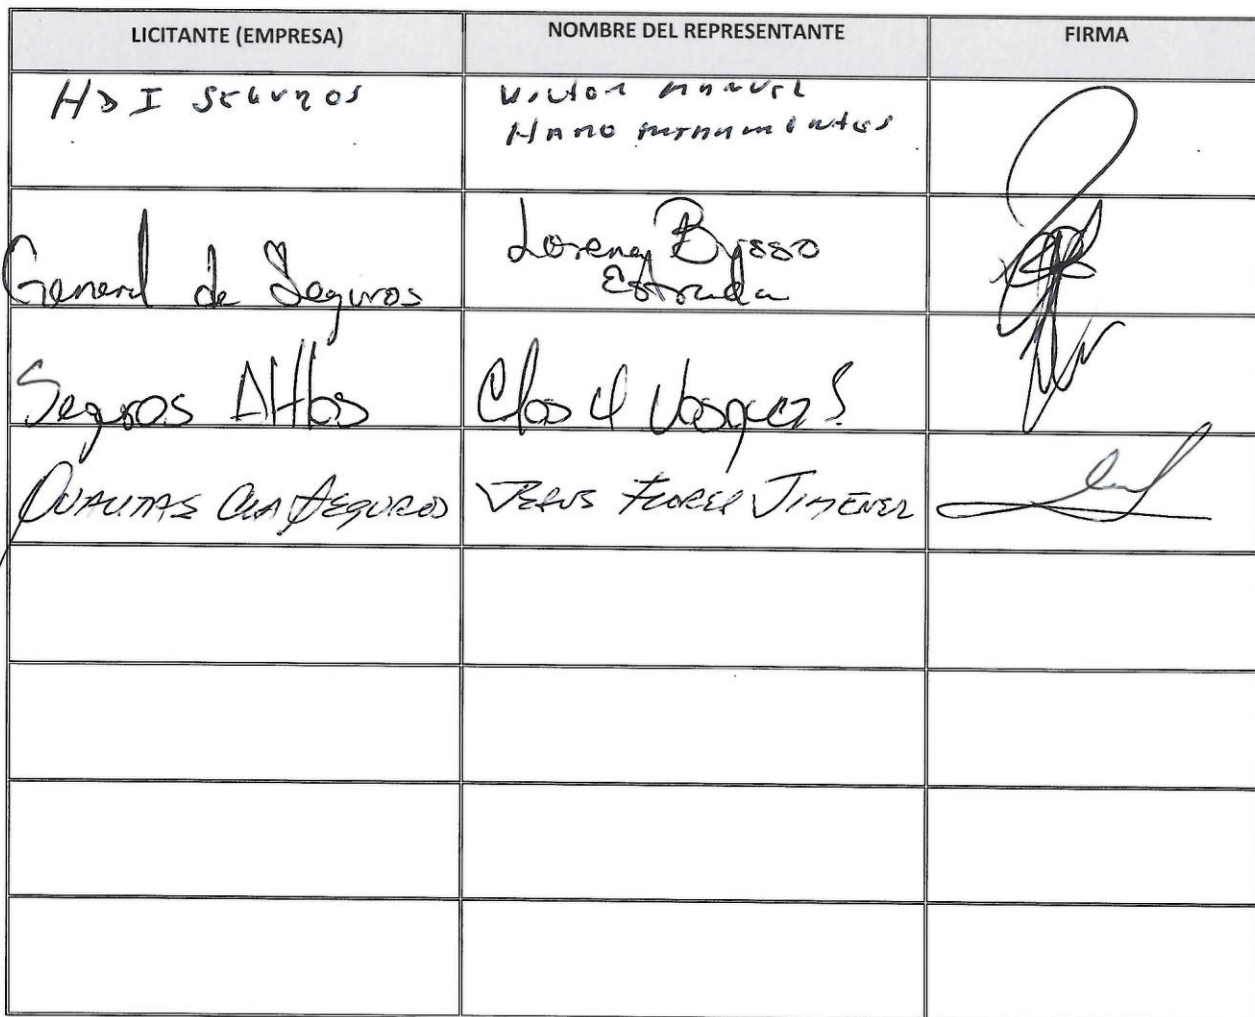 LICITANTE (EMPRESA)
NOMBRE DEL REPRESENTANTE
FIRMA
HDI SEGUROS
VICTOR MANUEL
HARO
General de Seguros
Lorena
Estrada
Seguros
Vasquez S
QUALITAS CIA SEGUROS
JESUS FLORES JIMENEZ